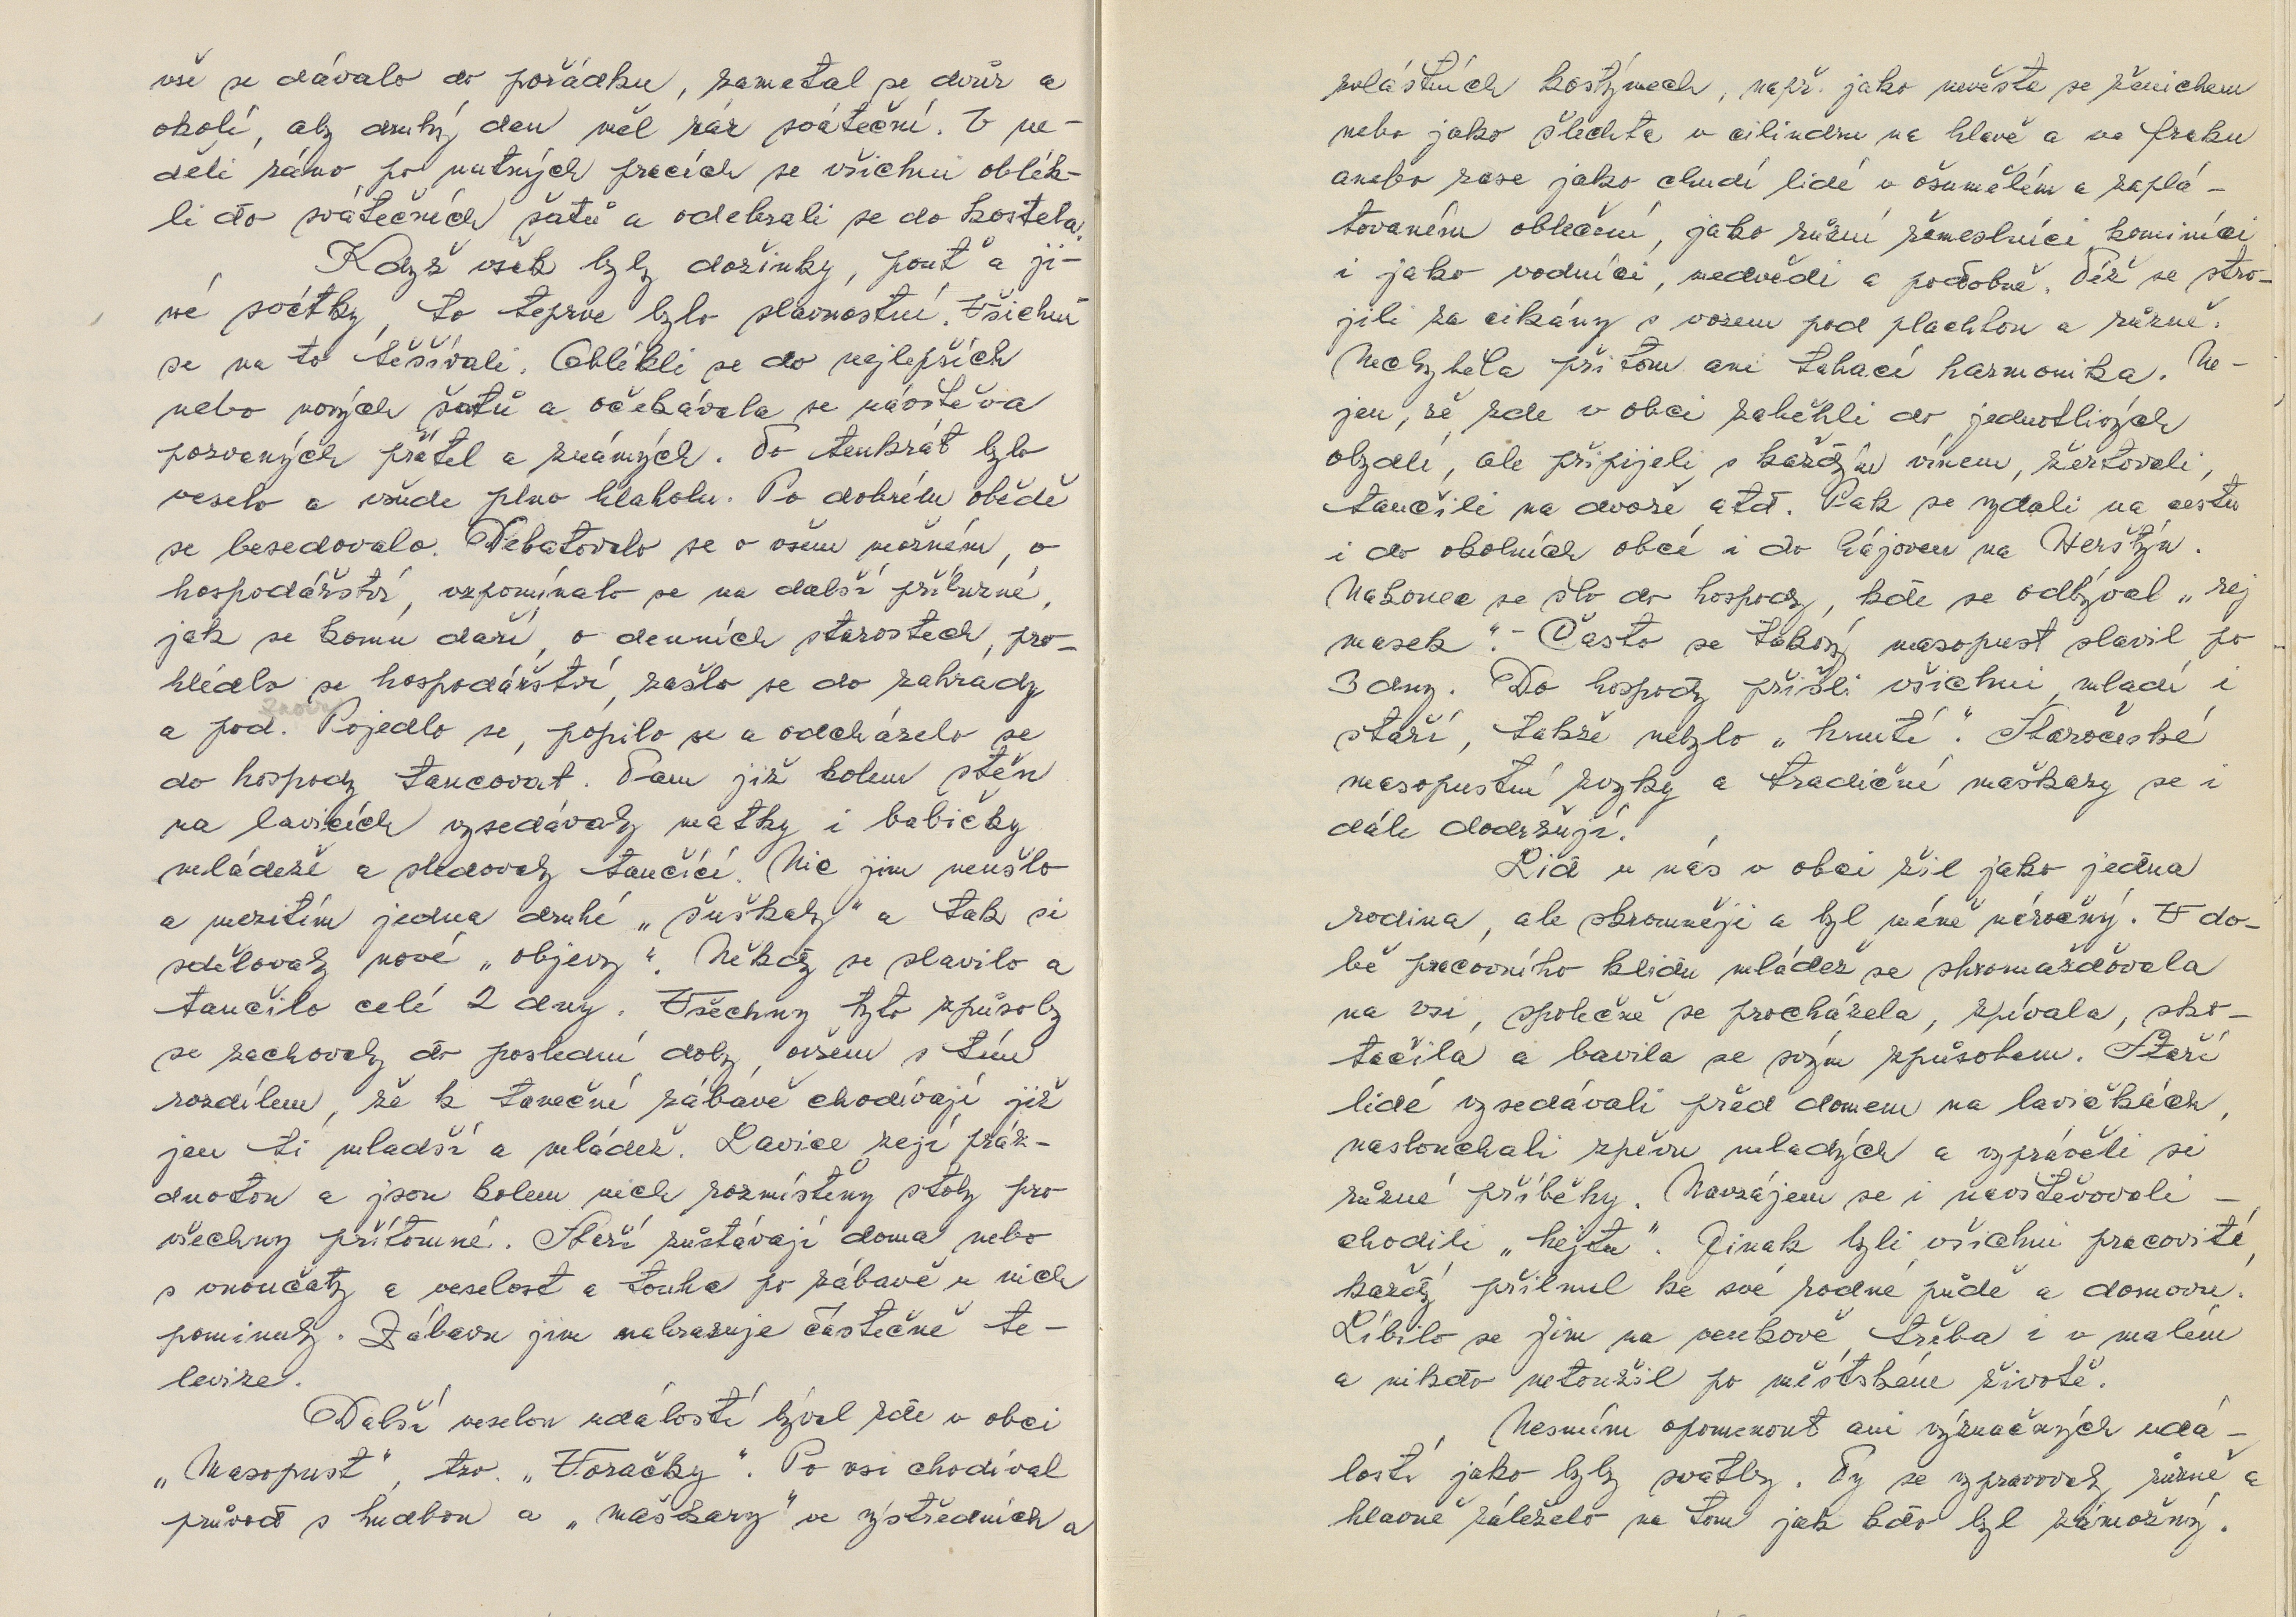 vše se dávalo do pořádku, zametal se dvůr a
okolí, aby druhý den měl ráz sváteční. V ne-
děli ráno po nutných pracích se všichni oblék-
li do svátečních šatů a odebrali se do kostela.
Když však byly dožinky, pouť a ji-
né svátky, to teprve bylo slavnostní. Všichni
se na to těšívali. Oblékli se do nejlepších
nebo nových šatů a očekávala se návštěva
pozvaných přátel a známých. To tenkrát bylo
veselo a všude plno hlaholu. Po dobrém obědě
se besedovalo. Debatovalo se o všem možném, o
hospodářství, vzpomínalo se na další příbuzné,
jak se komu daří, o denních starostech, pro-
hlédlo se hospodářství, zašlo se do zahrady
a pod. Pojedlo se, popilo se a odcházelo se
do hospody tancovat. Tam již kolem stěn
na lavicích vysedávaly matky i babičky
mládeže a sledovaly tančící. Nic jim neušlo
a mezitím jedna druhé „šuškaly" a tak si
sdělovaly nové „objevy". Někdy se slavilo a
tančilo celé 2 dny. Všechny tyto způsoby
se zachovaly do poslední doby, ovšem s tím
rozdílem, že k taneční zábavě chodívají již
jen ti mladší a mládež. Lavice zejí práz-
dnotou a jsou kolem nich rozmístěny stoly pro
všechny přítomné. Starší zůstávají doma nebo
s vnoučaty a veselost a touha po zábavě u nich
pominuly. Zábavu jim nahrazuje částečně te-
levize.
Další veselou událostí býval zde v obci
„Masopust", tzv. „Voračky". Po vsi chodíval
průvod s hudbou a „maškary" ve výstředních a
zvláštních kostýmech, např. jako nevěsta se ženichem
nebo jako šlechta v cilindru na hlavě a ve fraku
anebo zase jako chudí lidé v ošumělém a zaplá-
tovaném oblečení, jako různí řemeslníci, kominíci
i jako vodníci, medvědi a podobně. Též se stro-
jili za cikány s vozem pod plachtou a různě.
Nechyběla přitom ani tahací harmonika. Ne-
jen, že zde v obci zaběhli do jednotlivých
obydlí, ale připíjeli s každým vínem, žertovali,
tančili na dvoře atd. Pak se vydali na cestu
i do okolních obcí i do hájoven na Herštýn.
Nakonec se šlo do hospody, kde se odbýval „rej
masek". - Často se takový masopust slavil po
3 dny. Do hospody přišli všichni, mladí i
staří, takže nebylo „hnutí". Staročeské
masopustní zvyky a tradiční maškary se i
dále dodržují.
Lid u nás v obci žil jako jedna
rodina, ale skromněji a byl méně náročný. V do-
bě pracovního klidu mládež se shromažďovala
na vsi, společně se procházela, zpívala, sko-
tačila a bavila se svým způsobem. Starší
lidé vysedávali před domem na lavičkách,
naslouchali zpěvu mladých a vyprávěli si
různé příběhy. Navzájem se i navštěvovali -
chodili „hejtu". Jinak byli všichni pracovití,
každý přilnul ke své rodné půdě a domovu.
Líbilo se jim na venkově, třeba i v malém
a nikdo netoužil po městském životě.
Nesmím opomenout ani význačných udá-
lostí jako byly svatby. Ty se vypravovaly různě a
hlavně záleželo na tom jak kdo byl zámožný.